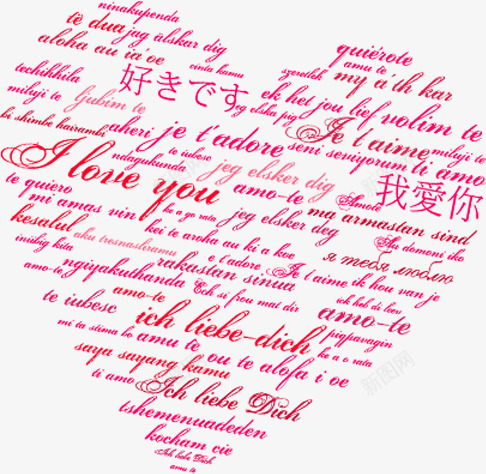 ninakupenda
të dua jag älskar dig
aloha au ia'oe
quiérote
amu te
techihhila
cinta kamu
szeretlek
my a'th kar
miluji te
ljubim te
好きです
eg elska pig
ek het jou lief
volim te
bi shimbe harambi
aheri
je t'adore
Je t'aime
seni seviyorum
miluji te
ti amo
I love you
ndagukunda
te iubesc
jeg elsker dig
amo-te
Amote
我愛你
te quiero
mi amas vin
ke a go rata
jeg elsker deg
ma armastan sind
kesalul
aku tresnasliramu
kei te aroha au ki a koe
Au domoni iko
inibig kita
rakastan sinua
e t'adore
Je t'aime
ik hou van je
я тебя люблю
amo-te
ngiyakuthanda
Ech si frou mat dir
ich heb di leev
te iubesc
amo-te
ich liebe-dich
amo-te
mi ta stima bo
amu te
piapavagin
saya sayang kamu
ou te alofa i oe
ke a o rata
ti amo
Ich liebe Dich
tshemenuadeden
kocham cie
Ich liebe Dich
amu te